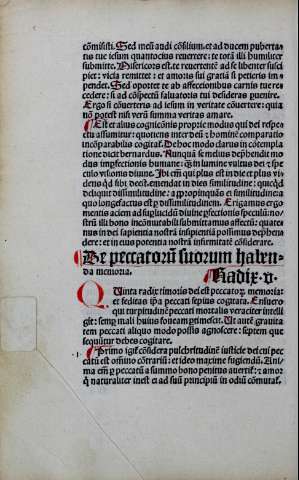 cōmisisti. Sed meū audi cōsilium. et ad ducem puberta
tis tue iesum quantocius reuertere: te totā illi humiliter
submitte. Misericors est. te reuertentē ad se libenter susci
piet: vicia remittet: et amoris sui gratiā si petieris im
pendet. Sed oportet te ab affectionibus carnis tue re
cedere: si ad cōspectū saluatoris tui desideras puenire.
Ergo si cōuerteris ad iesum in veritate cōuertere: quia
nō potest nisi verū summa veritas amare.
Est et alius cognitionis proprie modus qui dei respe
ctu assumitur: quotiens inter deū: hominē comparatio
incōparabilis cogitat̄. De hoc modo clarus in cōtempla
tione dicit bernardus. Nunquā se melius dephendit mo
dus imperfectionis humane: q̄ in lumine vultus dei: spe
culo visionis diuine. Ibi em̄ qui plus est in die et plus vi
dens qd̄ sibi deest. emendat in dies dissimilitudinē: quicqd̄
deliquit dissimilitudine: appropinquās ei similitudine:
quo longe factus est p dissimilitudinem. Erigamus ergo
mentis aciem ad fulgidū diuine pfectionis speculū: no
strū illi bono incōparabili submittamus affectū: quate
nus in dei sapientia nostra insipientia possimus dephen
dere: et in eius potentia nostrā infirmitatē cōsiderare.
De peccatorū suorum haben-
da memoria. Radix .v.
Quinta radix timoris dei est peccatoꝝ memoria:
et feditas ip̄a peccati sepius cogitata. Ens uero
qui turpitudinē peccati mortalis veraciter intelli
git: semp mali huius fouea ptimescit. Ut autē grauita
tem peccati aliquo modo possis agnoscere: septem que
sequūtur debes cogitare.
.1. Primo igit̄ cōsidera pulchritudinē iusticie dei cui pec
catū est omnino cōtrariū: et ideo maxime fugiendū. Ani
ma em̄ p peccatū a summo bono penitus auertit̄: amor
q̄ naturaliter inest ei ad suū principiū in odiū cōmutat̄.